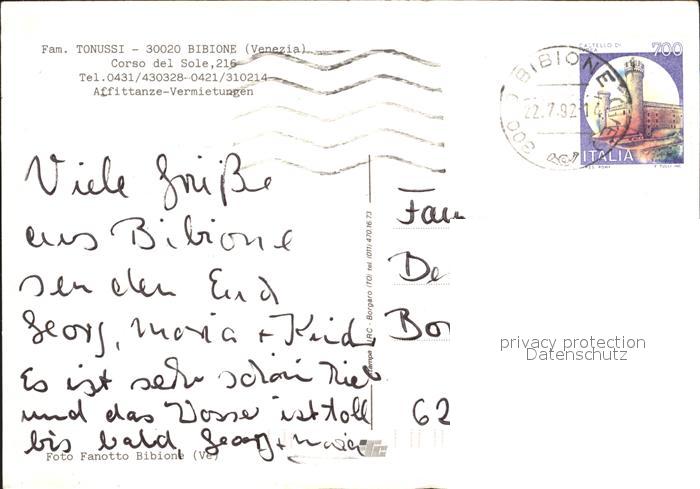 Fam. TONUSSI - 30020 BIBIONE (Venezia)
Corso del Sole,216
Tel.0431/430328-0421/310214
Affittanze-Vermietungen
CASTELLO DI
700
ITALIA
BIBIONE
22.7.92-14
Viele Grüße
aus Bibione
senden Euch
Georg, Maria + Kind
Es ist sehr schön hier
und das Wasser ist toll
bis bald, Georg + Maria
Foto Fanotto Bibione (Ve)
Stampa LIRC - Borgaro (TO) tel (011) 470.16.73
Fam
De
Bor
62
privacy protection
Datenschutz